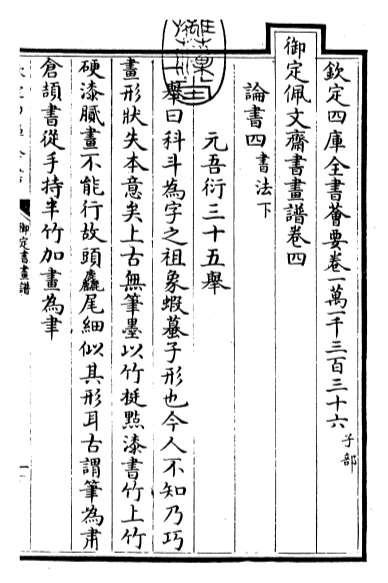 欽定四庫全書薈要卷一萬一千三百三十六 子部
御定佩文齋書畫譜卷四
論書四 書法下
元吾衍三十五舉
一舉曰科斗為字之祖象蝦蟇子形也今人不知乃巧
畫形狀失本意矣上古無筆墨以竹挺點漆書竹上竹
硬漆膩畫不能行故頭麤尾細似其形耳古謂筆為聿
倉頡書從手持半竹加畫為聿
御定書畫譜
一